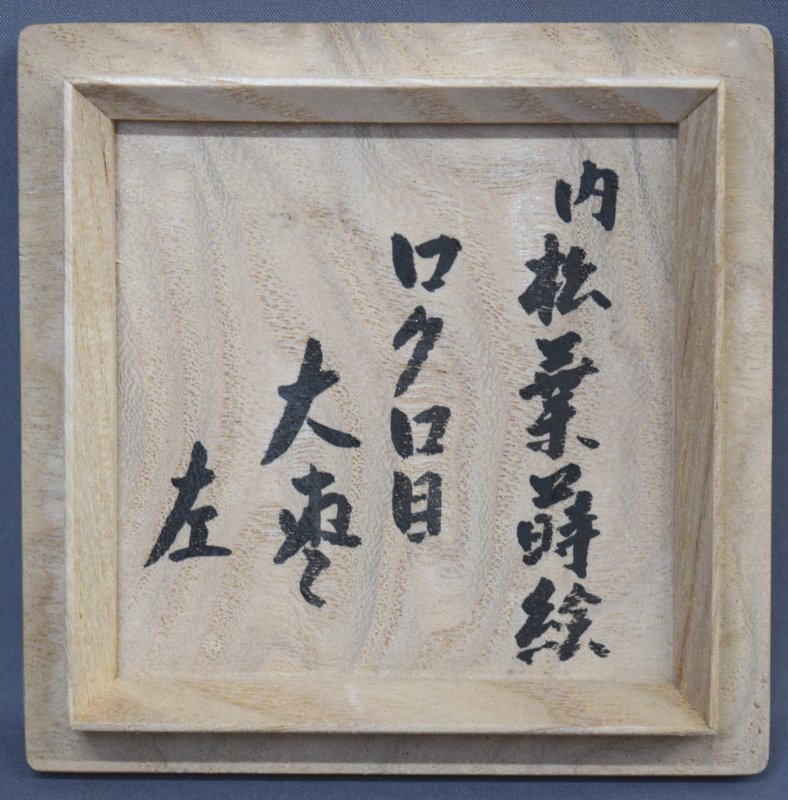 内松葉蒔絵
ロクロ目
大棗
左